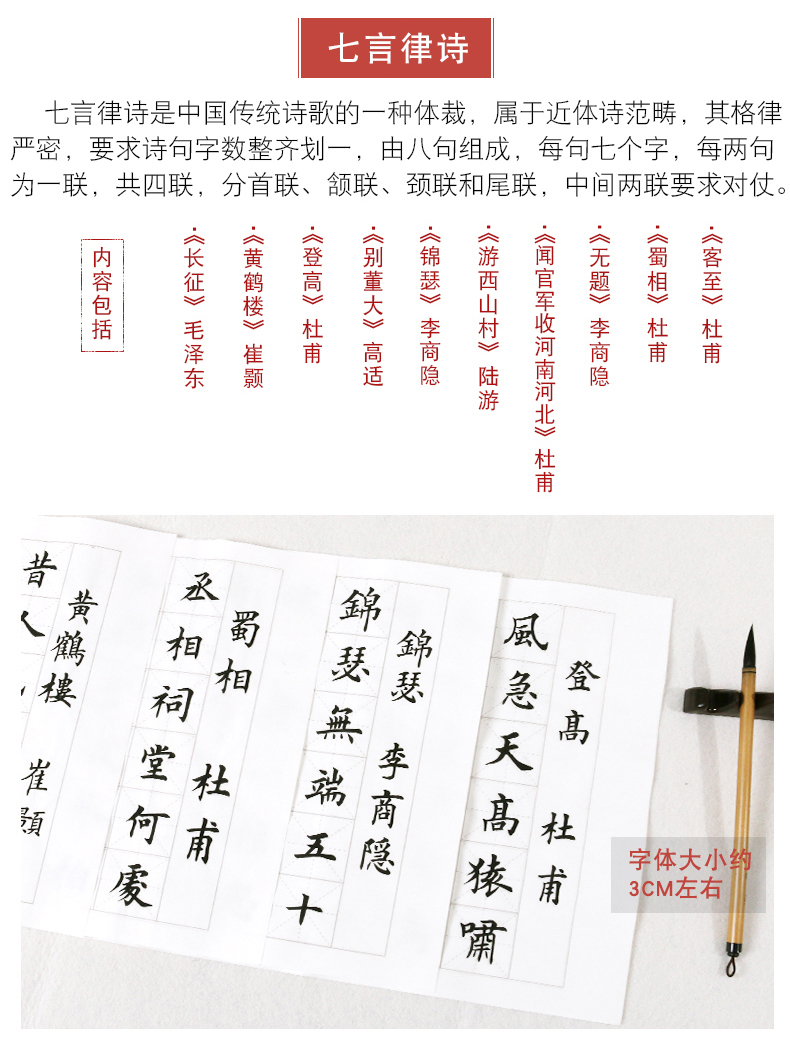 七言律诗
七言律诗是中国传统诗歌的一种体裁，属于近体诗范畴，其格律
严密，要求诗句字数整齐划一，由八句组成，每句七个字，每两句
为一联，共四联，分首联、颔联、颈联和尾联，中间两联要求对仗。
内容包括
·《长征》毛泽东
·《黄鹤楼》崔颢
·《登高》杜甫
·《别董大》高适
·《锦瑟》李商隐
·《游西山村》陆游
·《闻官军收河南河北》杜甫
·《无题》李商隐
·《蜀相》杜甫
·《客至》杜甫
登高 杜甫
風急天高猿嘯
錦瑟 李商隐
錦瑟無端五十
蜀相 杜甫
丞相祠堂何處
黄鶴樓 崔顥
昔人
字体大小约
3CM左右